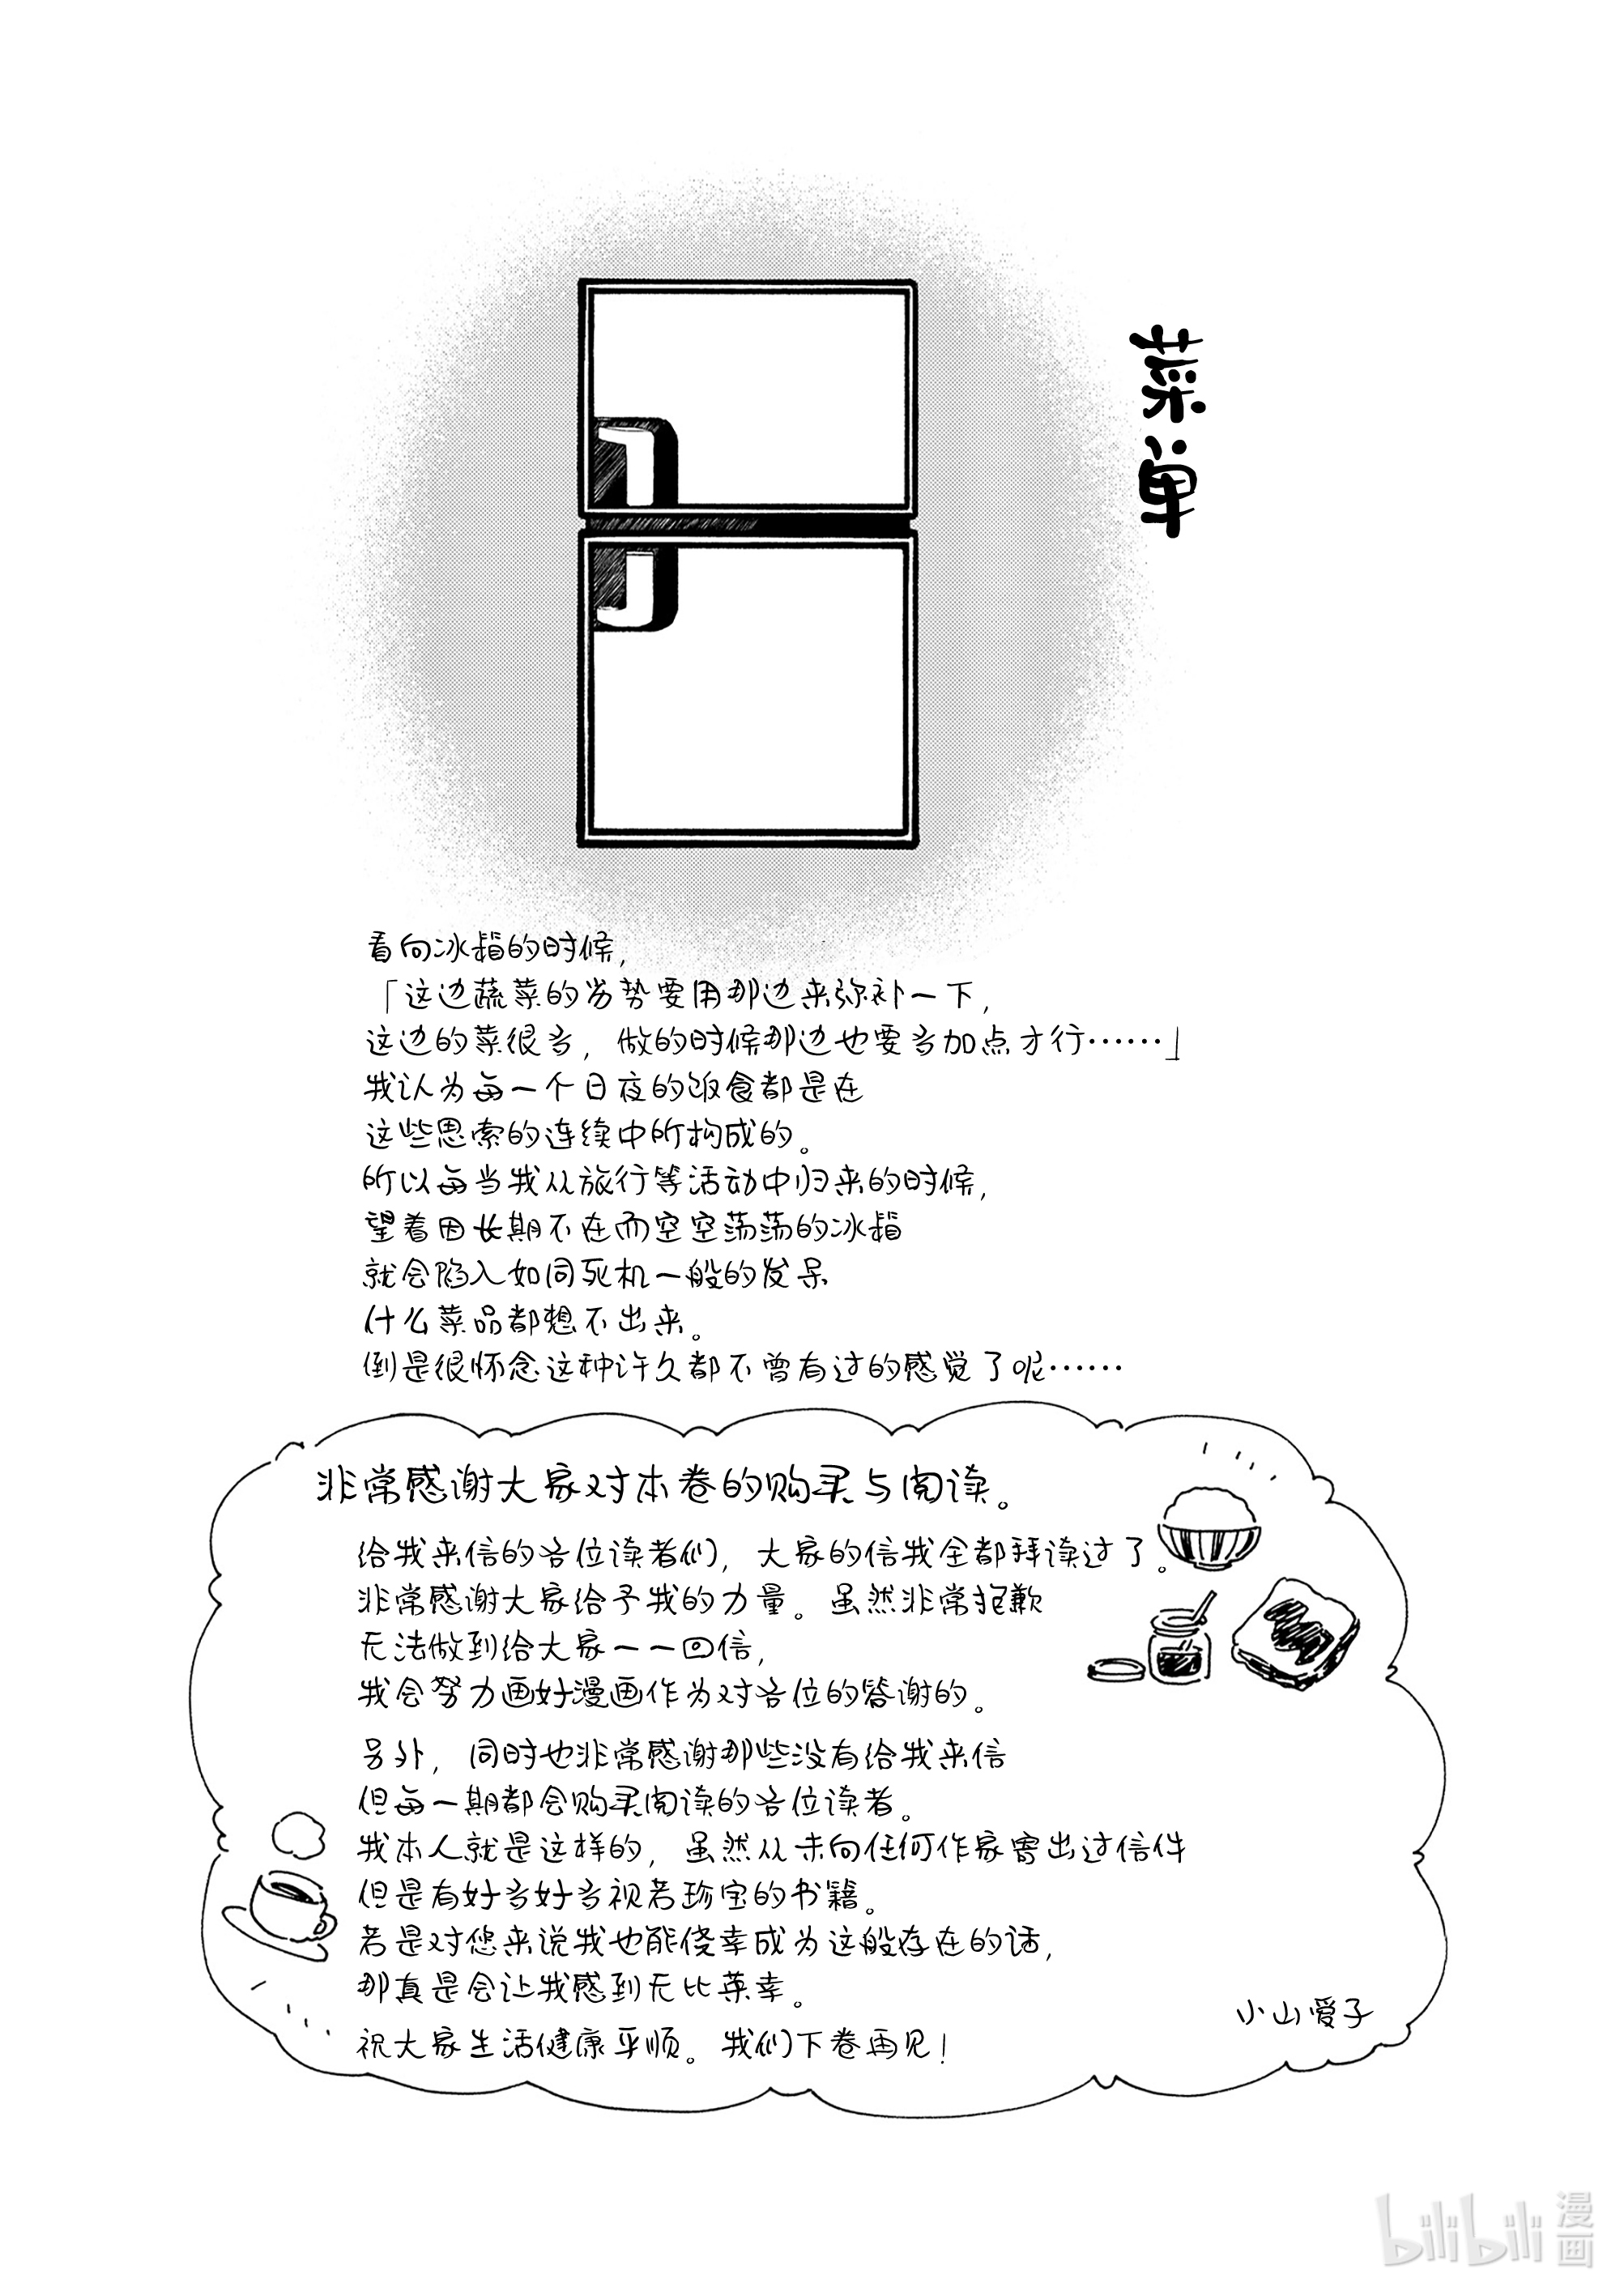 菜单
看向冰箱的时候，
「这边蔬菜的劣势要用那边来弥补一下，
这边的菜很多，做的时候那边也要多加点才行……」
我认为每一个日夜的饭食都是在
这些思索的连续中所构成的。
所以每当我从旅行等活动中归来的时候，
望着因长期不在而空空荡荡的冰箱
就会陷入如同死机一般的发呆
什么菜品都想不出来。
倒是很怀念这种许久都不曾有过的感觉了呢……
非常感谢大家对本卷的购买与阅读。
给我来信的各位读者们，大家的信我全都拜读过了。
非常感谢大家给予我的力量。虽然非常抱歉
无法做到给大家一一回信，
我会努力画好漫画作为对各位的答谢的。
另外，同时也非常感谢那些没有给我来信
但每一期都会购买阅读的各位读者。
我本人就是这样的，虽然从未向任何作家寄出过信件
但是有好多好多视若珍宝的书籍。
若是对您来说我也能侥幸成为这般存在的话，
那真是会让我感到无比荣幸。
祝大家生活健康平顺。我们下卷再见！
小山爱子
bilibili漫画